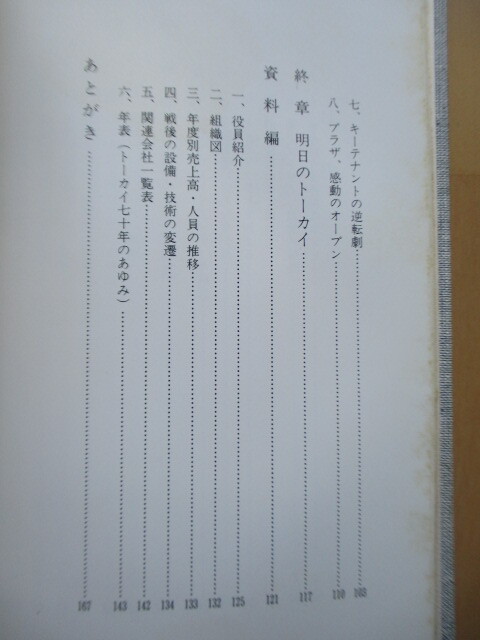 七、キーテナントの逆転劇……………………………103
八、プラザ、感動のオープン……………………………110
終章 明日のトーカイ……………………………117
資料編……………………………121
一、役員紹介……………………………125
二、組織図……………………………132
三、年度別売上高・人員の推移……………………………133
四、戦後の設備・技術の変遷……………………………134
五、関連会社一覧表……………………………142
六、年表（トーカイ七十年のあゆみ）……………………………143
あとがき……………………………167